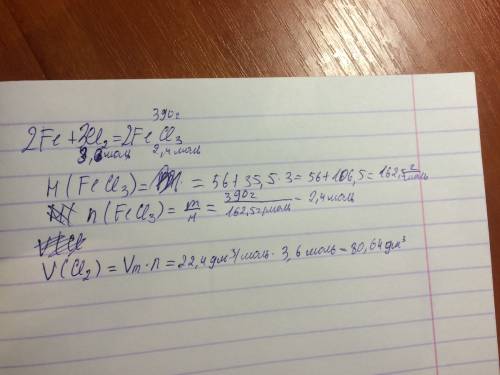 390г
2Fe + 3Cl₂ = 2FeCl₃
3,6моль 2,4моль
M(FeCl₃) = = 56+35,5·3 = 56+106,5 = 162,5 г/моль
n(FeCl₃) = m/M = 390г/162,5г/моль = 2,4моль
V(Cl₂) = Vm·n = 22,4дм³/моль · 3,6моль = 80,64дм³